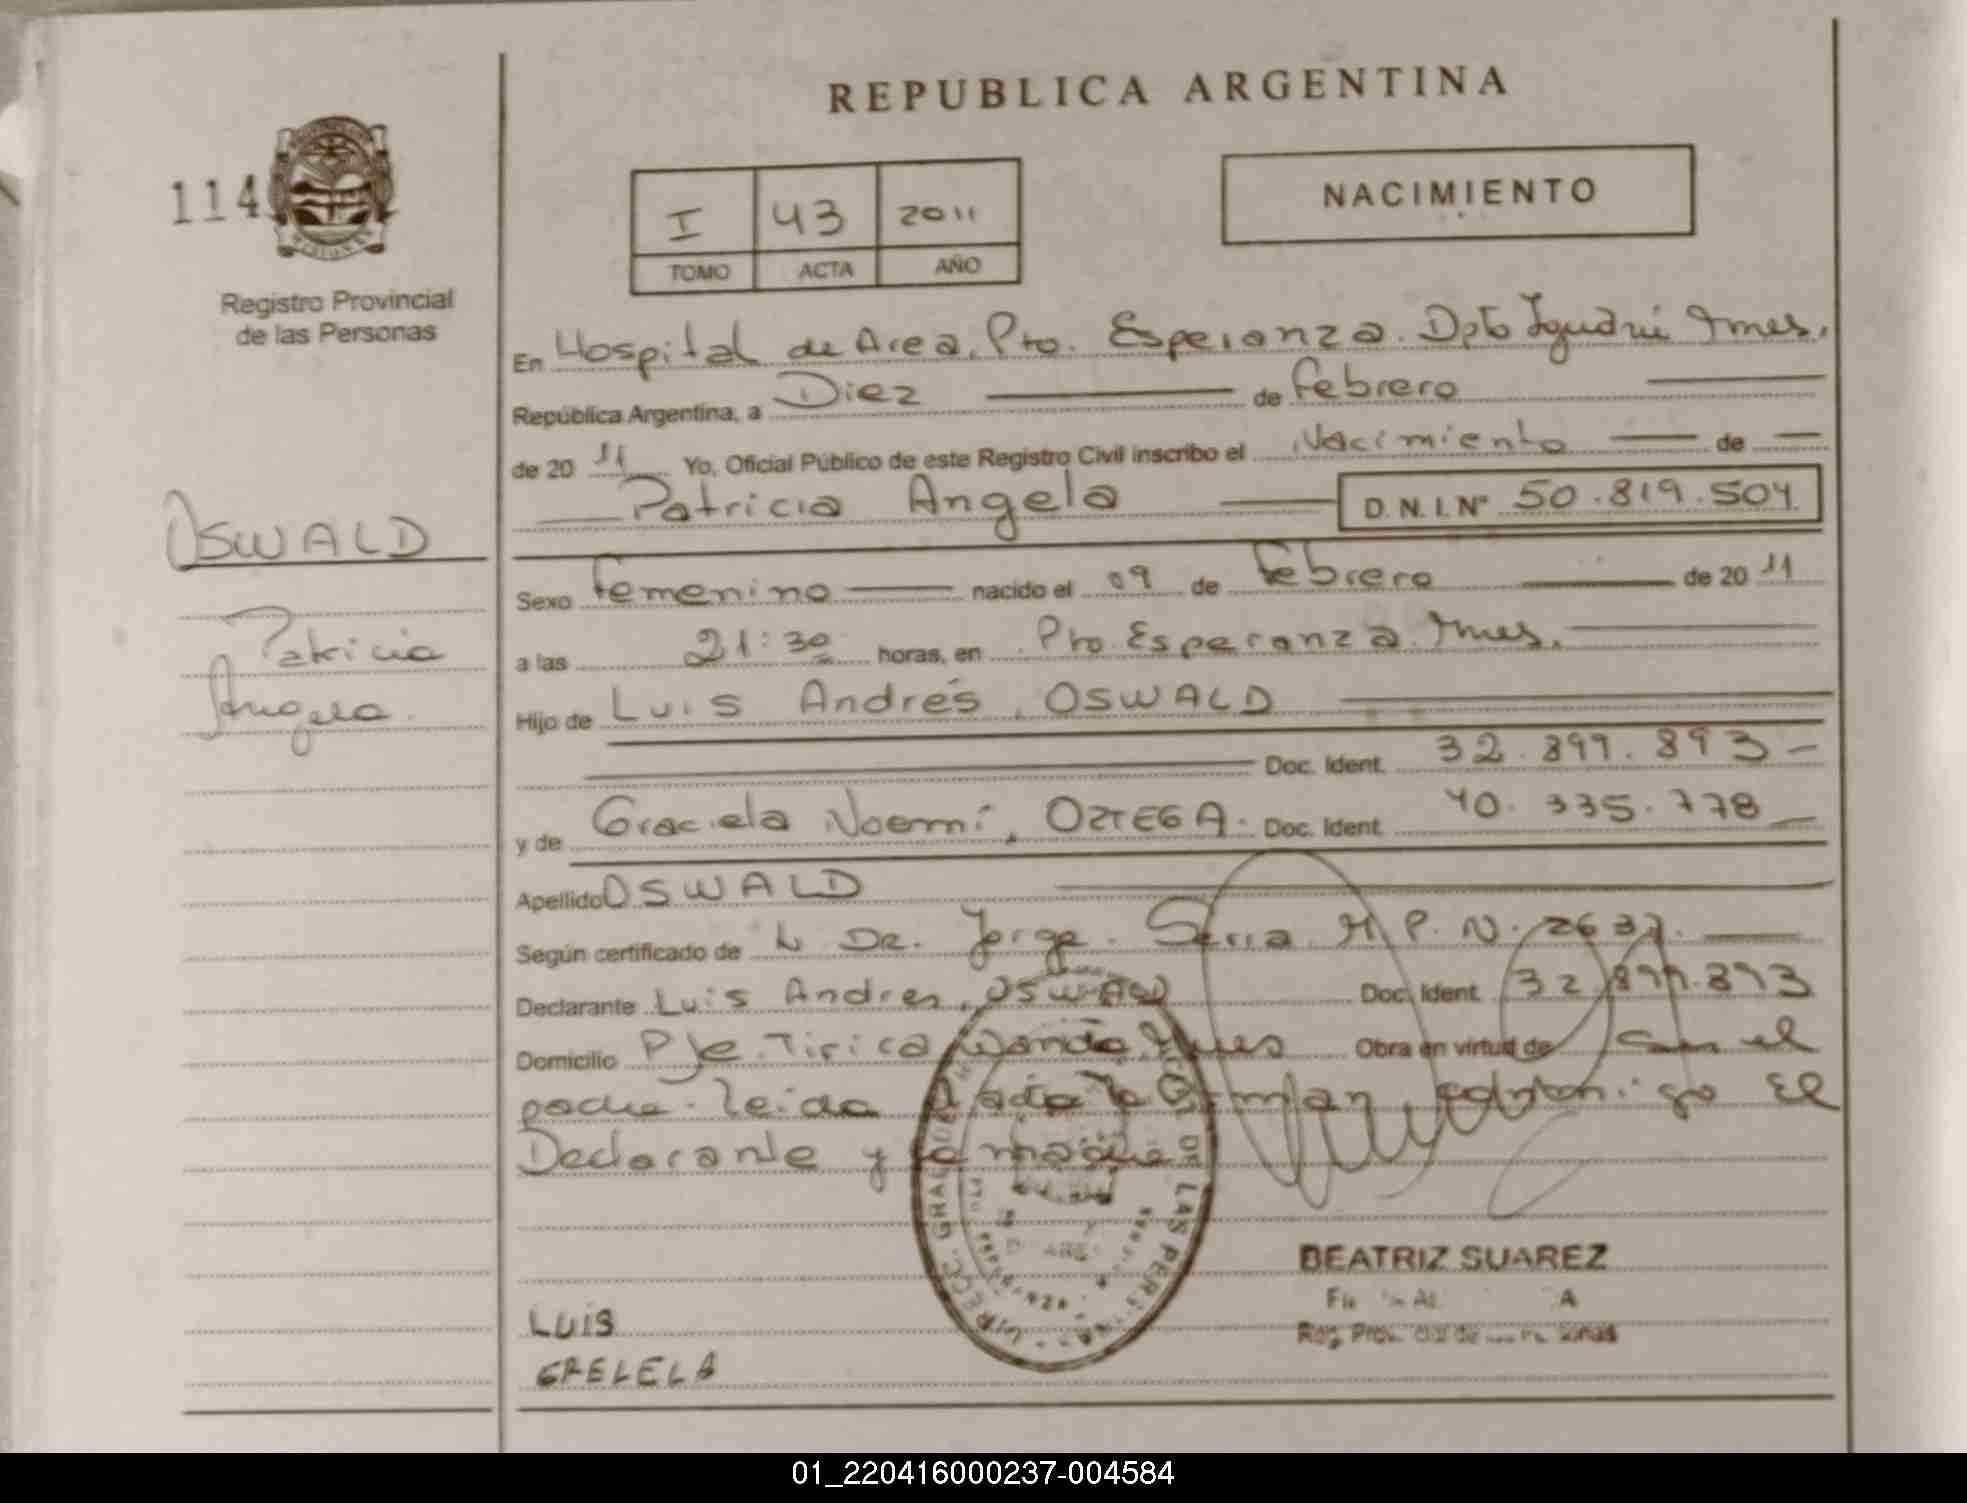 REPUBLICA ARGENTINA
114
I 43 2011
TOMO ACTA AÑO
NACIMIENTO
Registro Provincial
de las Personas
En Hospital de Area, Pto. Esperanza. Dpto Iguazú Mnes.
República Argentina, a Diez de febrero
de 20 11 Yo, Oficial Público de este Registro Civil inscribo el Nacimiento de
Patricia Angela D.N.I. Nº 50.819.504
OSWALD
Patricia
Angela
Sexo femenino nacido el 09 de febrero de 20 11
a las 21:30 horas, en Pto. Esperanza. Mnes.
Hijo de Luis Andrés, OSWALD
Doc. Ident. 32.899.893
y de Graciela Noemi, ORTEGA. Doc. Ident. 40.335.778
Apellido OSWALD
Según certificado de Dr. Jorge Serra M.P.N. 2637.
Declarante Luis Andres, OSWALD Doc. Ident. 32.899.893
Domicilio Pje. Tirica Wanda Mnes Obra en virtud de Ser el
padre. Leida el acta la firman conmigo El
Declarante y la madre
DE LAS PERSONAS
BEATRIZ SUAREZ
LUIS
GRELELA
01_220416000237-004584